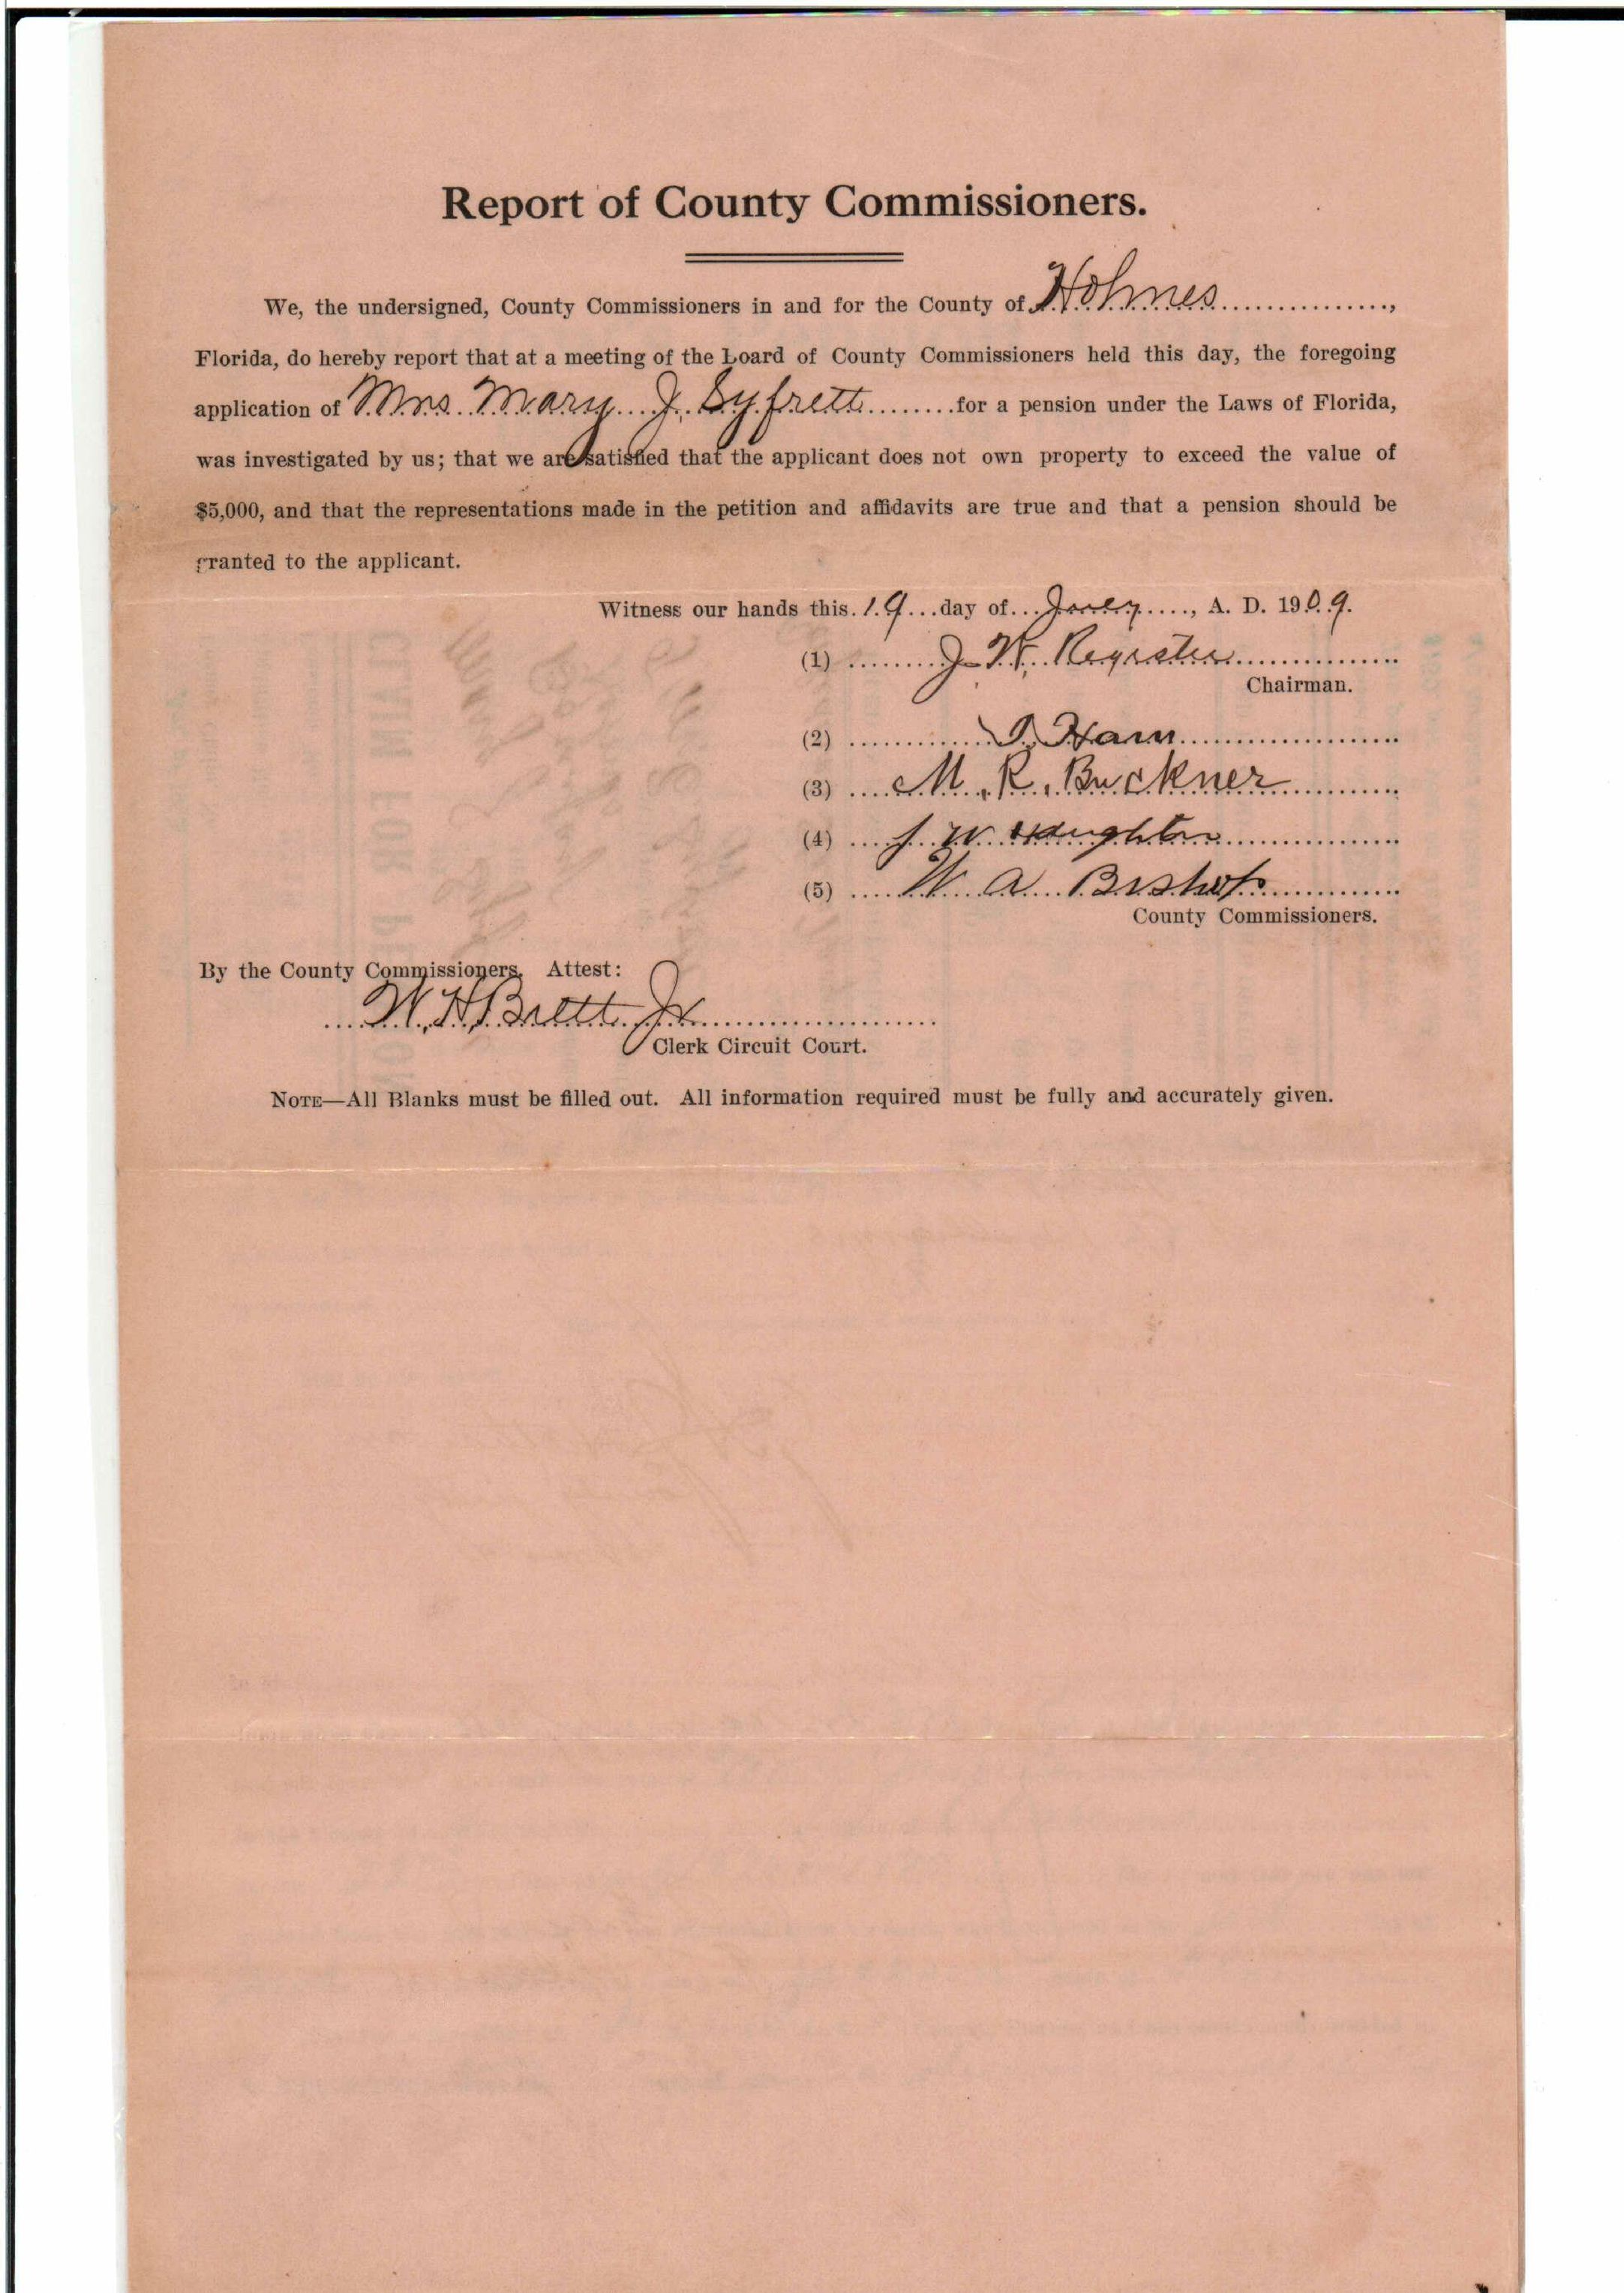 Report of County Commissioners.
We, the undersigned, County Commissioners in and for the County of Holmes,
Florida, do hereby report that at a meeting of the Board of County Commissioners held this day, the foregoing
application of Mrs. Mary J. Syfrett for a pension under the Laws of Florida,
was investigated by us; that we are satisfied that the applicant does not own property to exceed the value of
$5,000, and that the representations made in the petition and affidavits are true and that a pension should be
granted to the applicant.
Witness our hands this 19 day of, A. D. 1909.
(1) J. W. Register
Chairman.
(2) Ham
(3) M. R. Buckner
(4) W
(5) W A Bishop
County Commissioners.
By the County Commissioners, Attest:
W. H. Brett Jr
Clerk Circuit Court.
NOTE—All Blanks must be filled out. All information required must be fully and accurately given.